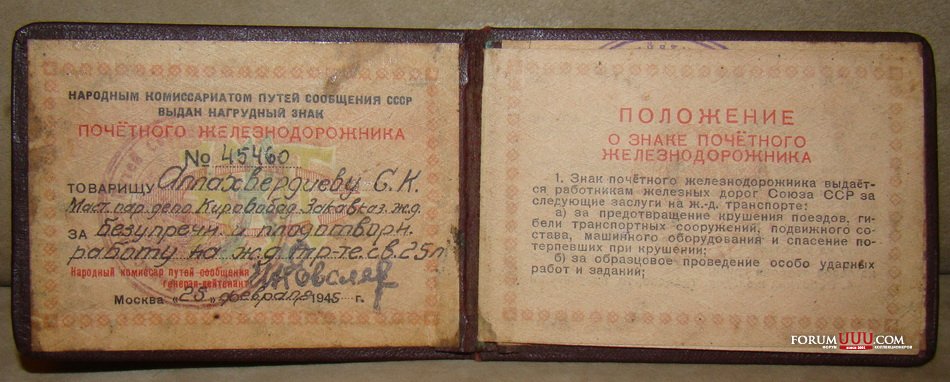 НАРОДНЫМ КОМИССАРИАТОМ ПУТЕЙ СООБЩЕНИЯ СССР
ВЫДАН НАГРУДНЫЙ ЗНАК
ПОЧЁТНОГО ЖЕЛЕЗНОДОРОЖНИКА
№ 45460
ТОВАРИЩУ Аллахвердиеву С. К.
Маст. пар. депо Кировобад Закавказ. ж.д.
ЗА безупречн. и плодотворн.
работу на ж.д. тр-те св. 25 л
Народный комиссар путей сообщения
генерал-лейтенант
Москва „25" февраля 1945 г.
ПОЛОЖЕНИЕ
О ЗНАКЕ ПОЧЁТНОГО
ЖЕЛЕЗНОДОРОЖНИКА
1. Знак почётного железнодорожника выдаёт-
ся работникам железных дорог Союза ССР за
следующие заслуги на ж.-д. транспорте:
а) за предотвращение крушения поездов, ги-
бели транспортных сооружений, подвижного со-
става, машинного оборудования и спасение по-
терпевших при крушении;
б) за образцовое проведение особо ударных
работ и заданий;
FORUMUUU.COM
ФОРУМ КОЛЛЕКЦИОНЕРОВ